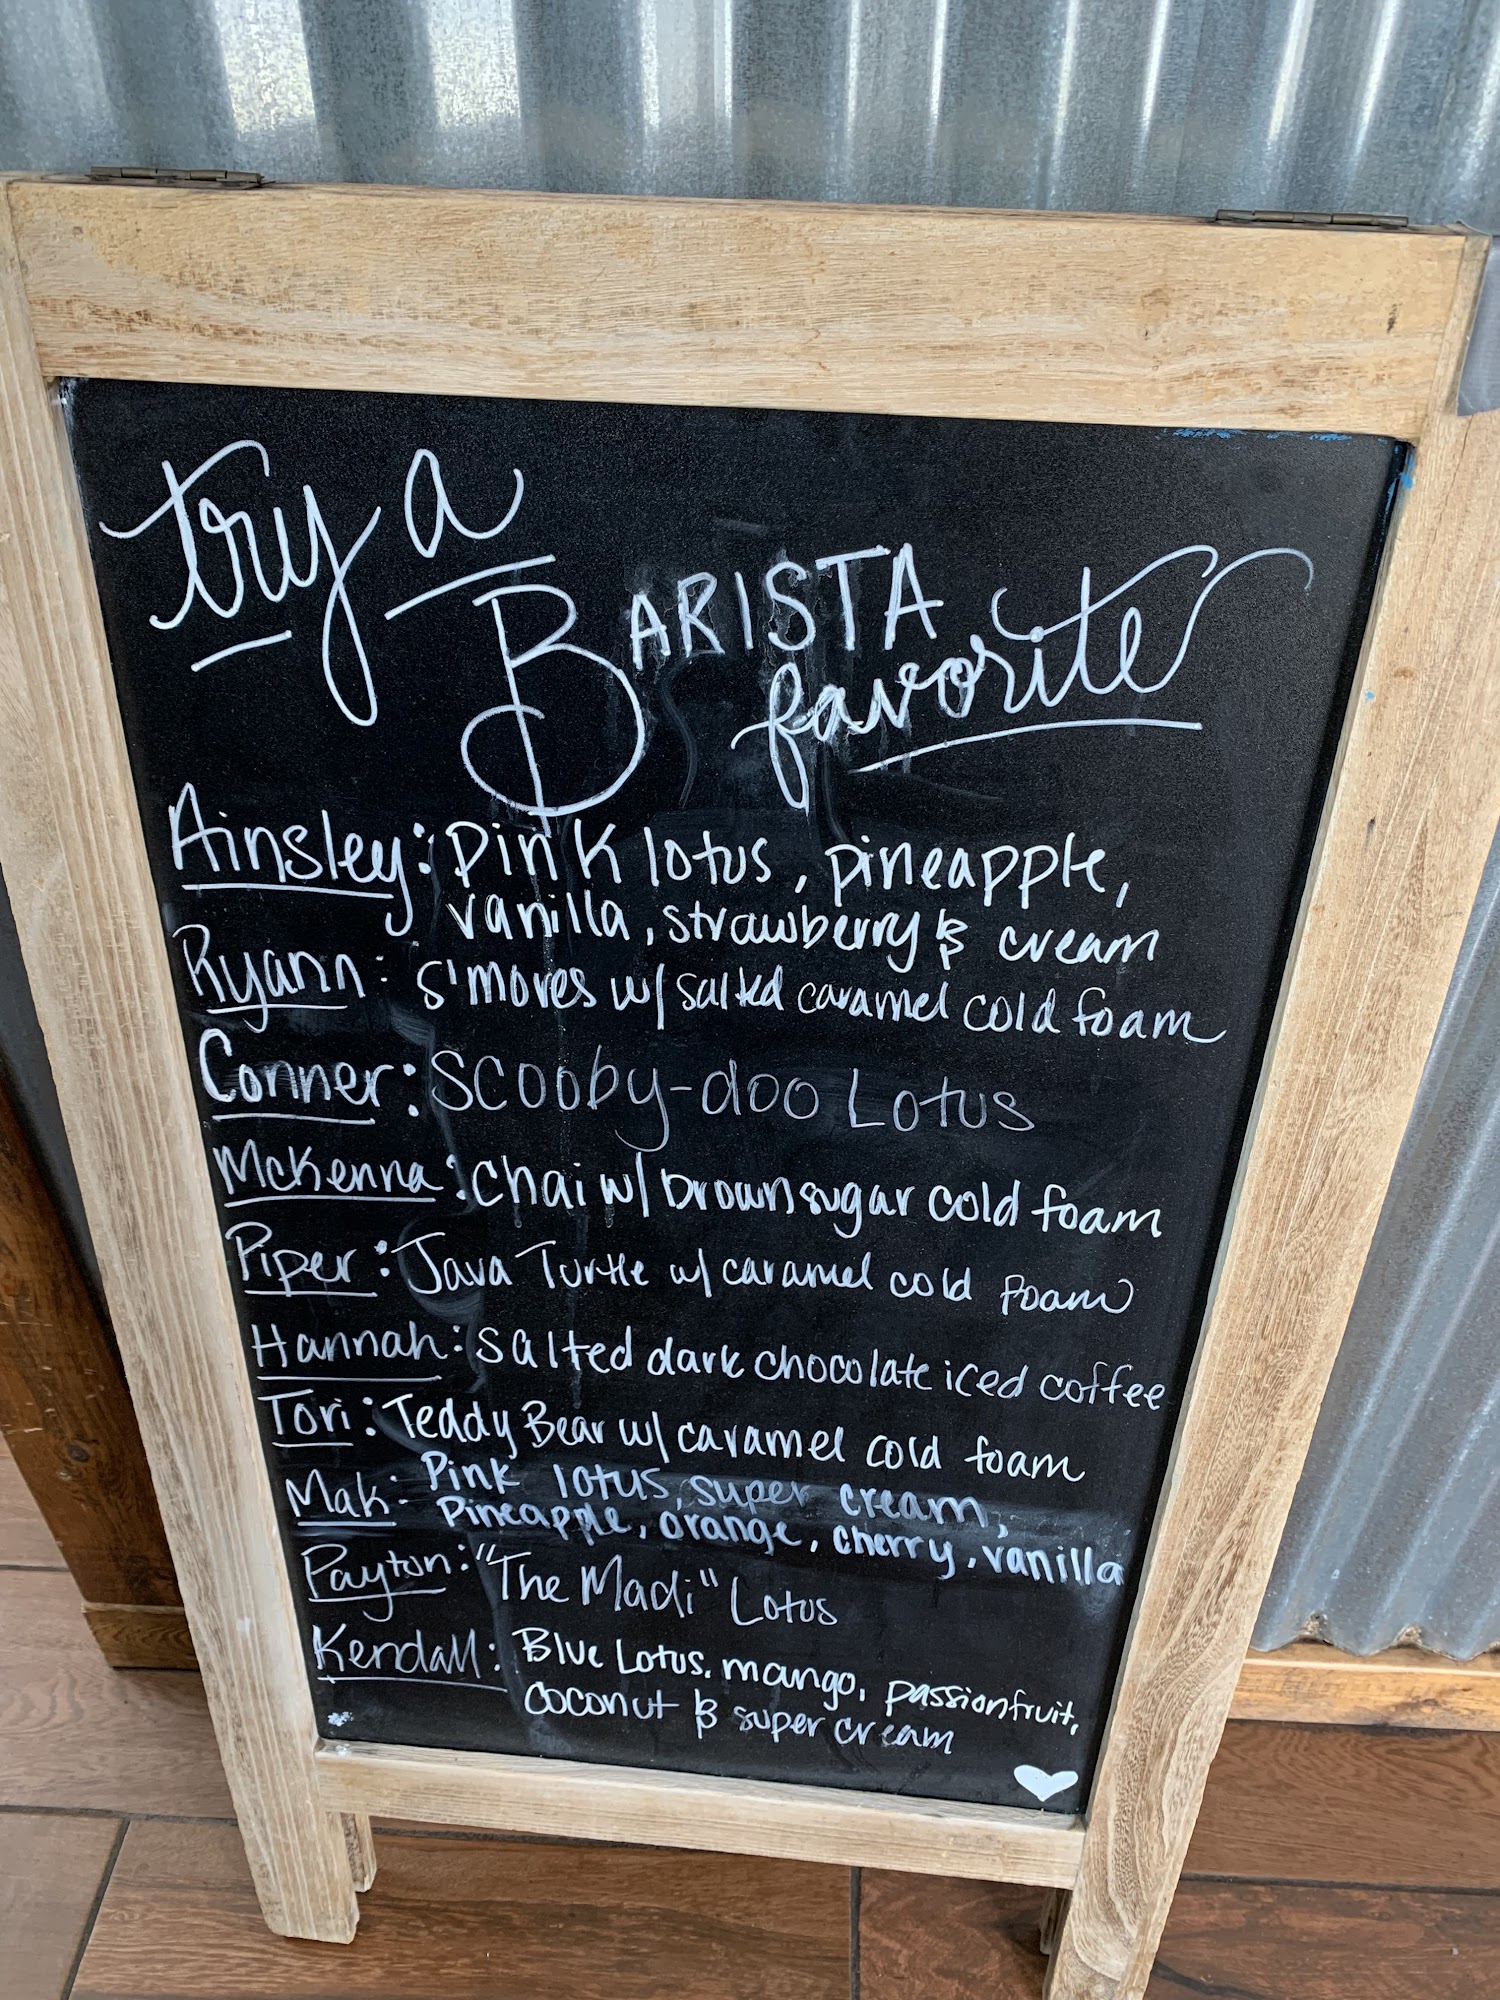 try a
BARISTA
favorite
Ainsley: pink lotus, pineapple,
vanilla, strawberry & cream
Ryann: s'mores w/ salted caramel cold foam
Conner: Scooby-doo Lotus
McKenna: Chai w/ brown sugar cold foam
Piper: Java Turtle w/ caramel cold foam
Hannah: salted dark chocolate iced coffee
Tori: Teddy Bear w/ caramel cold foam
Mak: Pink lotus, super cream,
Pineapple, orange, cherry, vanilla
Payton: "The Madi" Lotus
Kendall: Blue Lotus, mango, passionfruit,
coconut & super cream